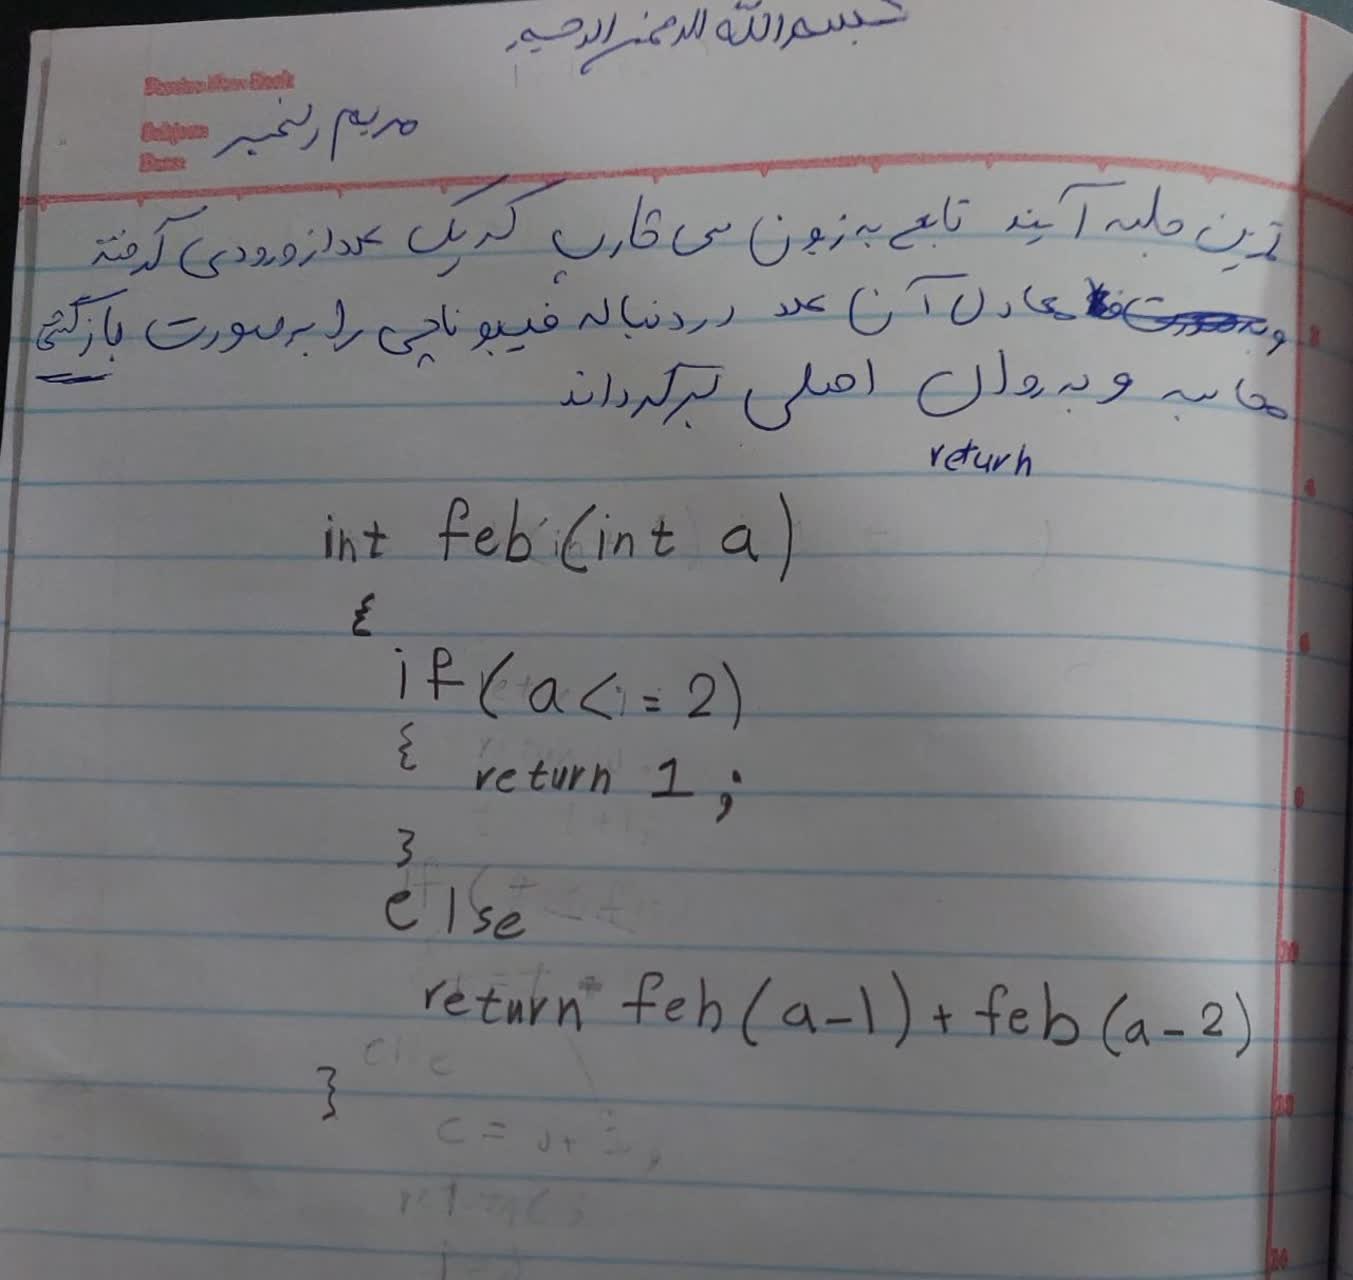 بسم الله الرحمن الرحیم
Subject:
Date:
مریم رنجبر
تمرین جلسه آینده تابعی به زبون سی شارپ که یک عدد از ورودی گرفته
و معادل آن عدد در دنباله فیبوناچی را به صورت بازگشتی
محاسبه و به روال اصلی برگرداند
return
int feb (int a)
{
if (a <= 2)
{ return 1 ;
}
else
return feb (a-1) + feb (a-2)
}